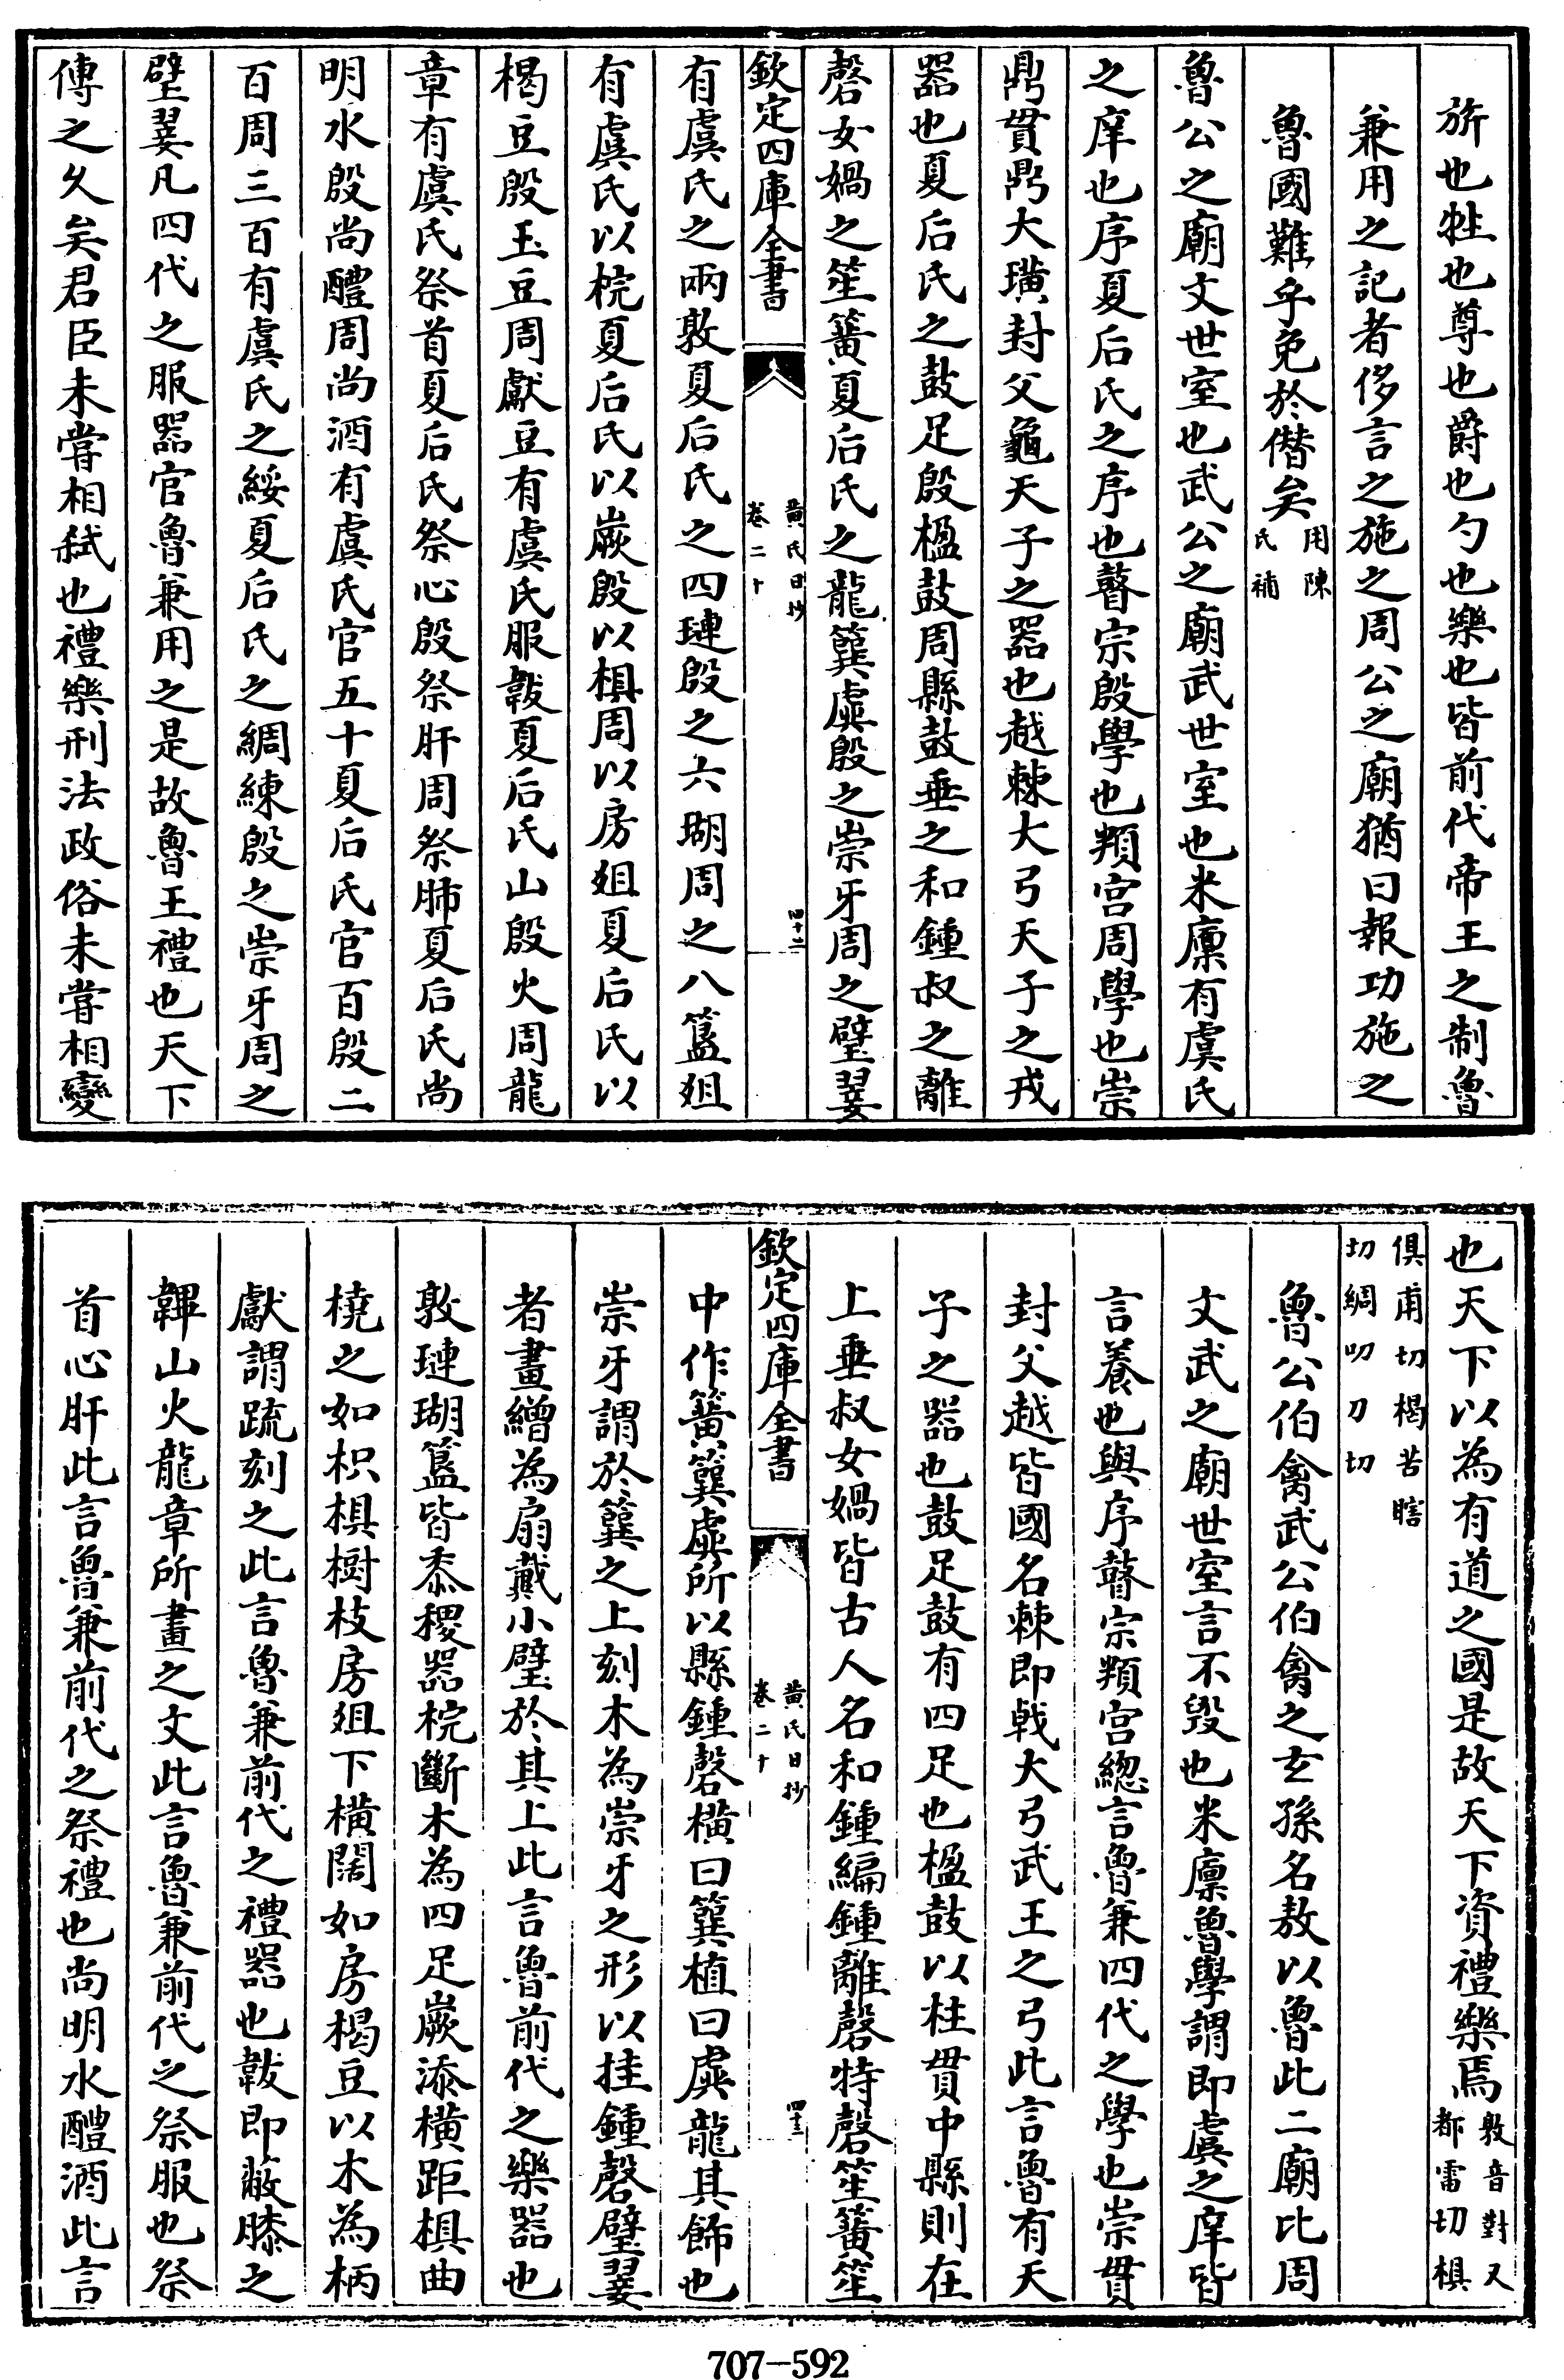 旂也牲也尊也爵也勺也樂也皆前代帝王之制魯
兼用之記者侈言之施之周公之廟猶曰報功施之
魯國難乎免於僭矣用陳氏補
魯公之廟文世室也武公之廟武世室也米廩有虞氏
之庠也序夏后氏之序也瞽宗殷學也頖宫周學也崇
鼎貫鼎大璜封父龜天子之器也越棘大弓天子之戎
器也夏后氏之鼓足殷楹鼓周縣鼓垂之和鍾叔之離
磬女媧之笙簧夏后氏之龍簨虡殷之崇牙周之璧翣
欽定四庫全書
黄氏日抄
卷二十
四十二
有虞氏之兩敦夏后氏之四璉殷之六瑚周之八簋俎
有虞氏以梡夏后氏以嶡殷以椇周以房俎夏后氏以
楬豆殷玉豆周獻豆有虞氏服韍夏后氏山殷火周龍
章有虞氏祭首夏后氏祭心殷祭肝周祭肺夏后氏尚
明水殷尚醴周尚酒有虞氏官五十夏后氏官百殷二
百周三百有虞氏之綏夏后氏之綢練殷之崇牙周之
璧翣凡四代之服器官魯兼用之是故魯王禮也天下
傳之久矣君臣未嘗相弑也禮樂刑法政俗未嘗相變
也天下以為有道之國是故天下資禮樂焉敦音對又都雷切椇
俱甫切楬苦瞎切綢叨刀切
魯公伯禽武公伯禽之玄孫名敖以魯此二廟比周
文武之廟世室言不毁也米廩魯學謂即虞之庠皆
言養也與序瞽宗頖宫緫言魯兼四代之學也崇貫
封父越皆國名棘即戟大弓武王之弓此言魯有天
子之器也鼓足鼓有四足也楹鼓以柱貫中縣則在
上垂叔女媧皆古人名和鍾編鍾離磬特磬笙簧笙
欽定四庫全書
黄氏日抄
卷二十
四十三
中作簧簨虡所以縣鍾磬横曰簨植曰虡龍其飾也
崇牙謂於簨之上刻木為崇牙之形以挂鍾磬璧翣
者畫繒為扇戴小璧於其上此言魯前代之樂器也
敦璉瑚簋皆黍稷器梡斷木為四足嶡添横距椇曲
橈之如枳椇樹枝房俎下横闊如房楬豆以木為柄
獻謂疏刻之此言魯兼前代之禮器也韍即蔽膝之
韠山火龍章所畫之文此言魯兼前代之祭服也祭
首心肝此言魯兼前代之祭禮也尚明水醴酒此言
707-592